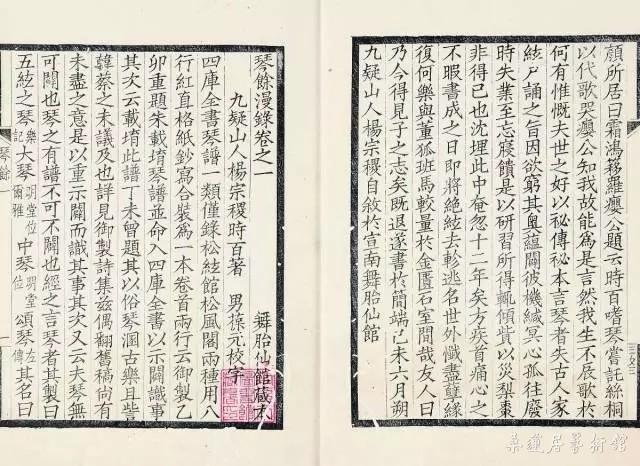 顏所居曰霜鴻簃羅癭公題云時百嗜琴嘗託絲桐
以代歌哭癭公知我故能為是言然我生不辰歌於
何有惟慨夫世之好以祕傳秘本言琴者失古人家
絃戶誦之旨因欲窮其奧蘊闢彼機緘冥心孤往廢
時失業至忘寢饋是以研習所得輒傾貲以災梨棗
非得已也沈埋此中奄忽十二年矣方疾首痛心之
不暇書成之日即將絕絃去軫逃名世外懺盡孽緣
復何樂與董狐班馬較量於金匱石室間哉友人曰
乃今得見子之志矣既退遂書於簡端己未六月朔
九疑山人楊宗稷自敘於宣南舞胎仙館
琴餘漫錄卷之一 舞胎仙館藏本
九疑山人楊宗稷時百著 男葆元校字
四庫全書琴譜一類僅錄松絃館松風閣兩種用八
行紅直格紙鈔寫合裝為一本卷首兩行云御製乙
卯重題朱載堉琴譜並命入四庫全書以示闢識事
其次云載堉此譜丁未曾題其以俗琴溷古樂且訾
韓蔡之未議及也詳見御製詩集茲偶翻舊稿尚有
未盡之意是以重示闢而識其事其次又云夫琴無
可闢也琴之有譜不可不闢也經之言琴者其製曰
五絃之琴樂記大琴明堂位爾雅中琴明堂位頌琴左傳其名曰
琴餘一
一
菜蓮居藝術館